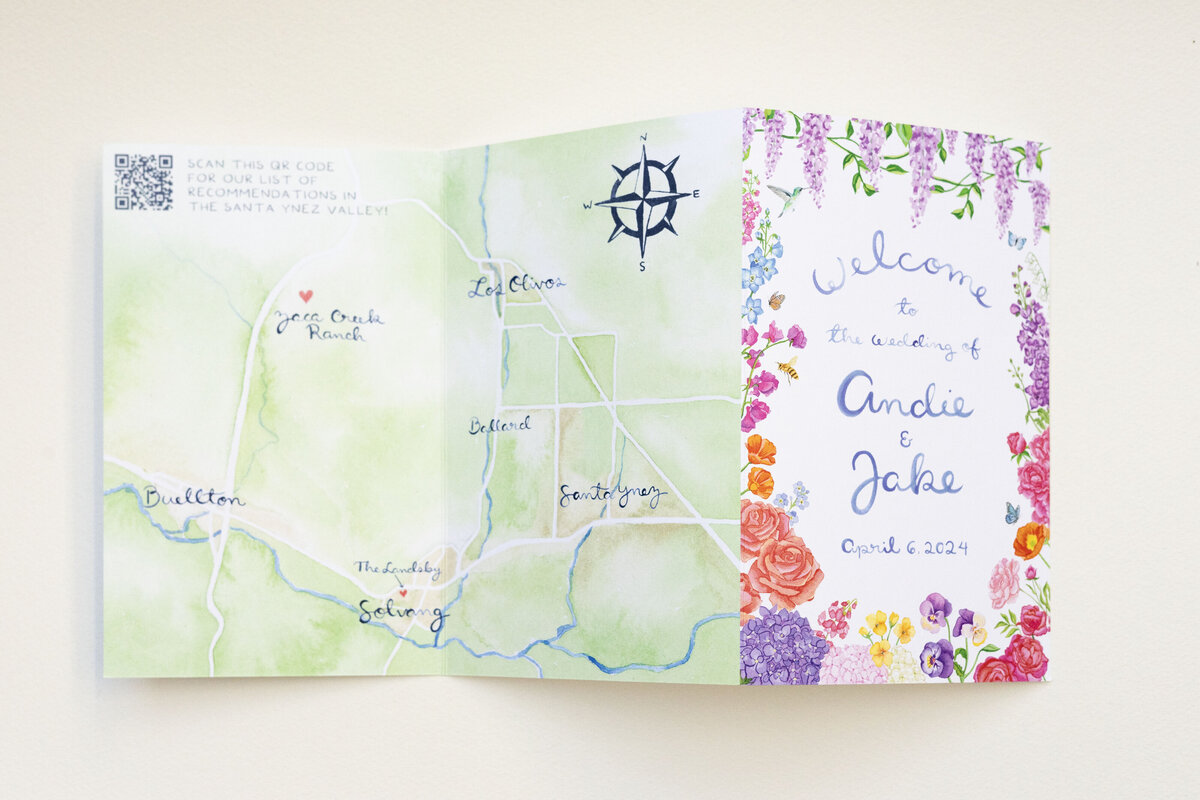 SCAN THIS QR CODE
FOR OUR LIST OF
RECOMMENDATIONS IN
THE SANTA YNEZ VALLEY!
Zaca Creek
Ranch
Buellton
The Landsby
Solvang
N
W
E
S
Los Olivos
Ballard
Santa Ynez
Welcome
to
the wedding of
Andie
&
Jake
April 6, 2024